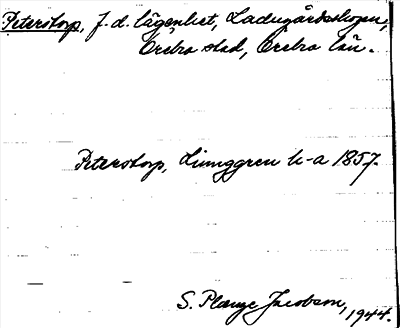 Peterstorp, f.d. lägenhet, Ladugårdsskogen,
Örebro stad, Örebro län.
Peterstorp, Ljunggren h-a 1857.
S. Plange Jacobson,
1944.